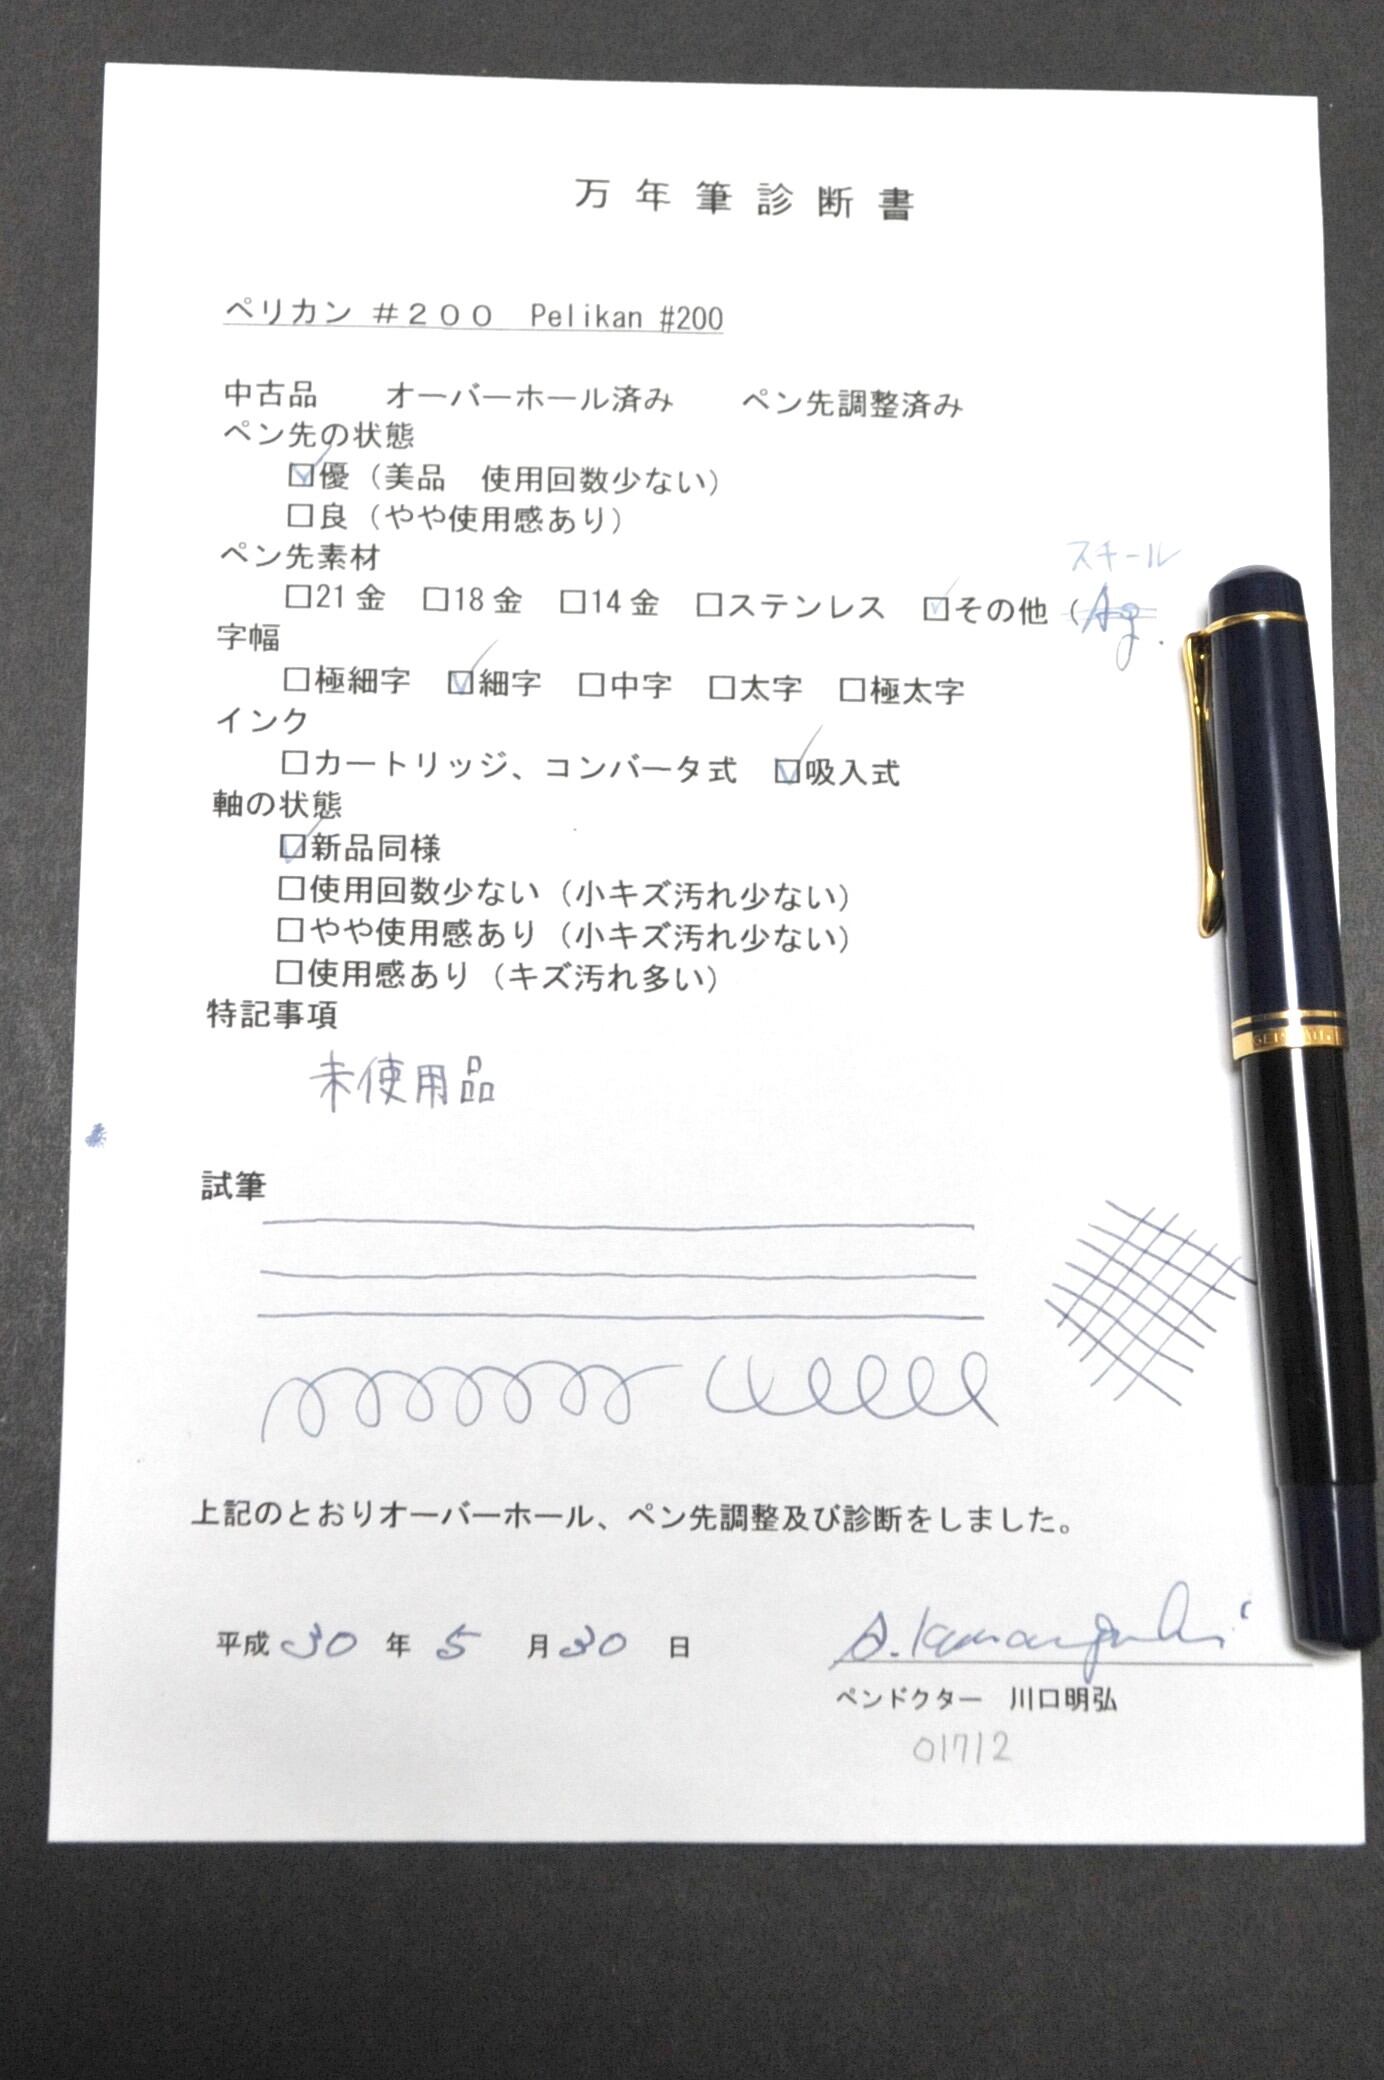 万年筆診断書
ペリカン ＃２００　Pelikan #200
中古品　　オーバーホール済み　　ペン先調整済み
ペン先の状態
☑優（美品　使用回数少ない）
□良（やや使用感あり）
ペン先素材
スチール
□21金　□18金　□14金　□ステンレス　☑その他（Ag.
字幅
□極細字　☑細字　□中字　□太字　□極太字
インク
□カートリッジ、コンバータ式　☑吸入式
軸の状態
☑新品同様
□使用回数少ない（小キズ汚れ少ない）
□やや使用感あり（小キズ汚れ少ない）
□使用感あり（キズ汚れ多い）
特記事項
未使用品
試筆
上記のとおりオーバーホール、ペン先調整及び診断をしました。
平成30年5月30日
A. Kawaguchi
ペンドクター　川口明弘
01712